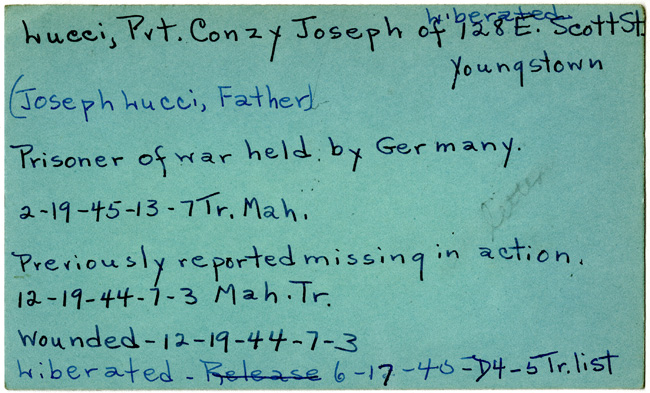 Liberated
Lucci, Pvt. Conzy Joseph of 128 E. Scott St.
Youngstown
(Joseph Lucci, Father)
Prisoner of war held by Germany.
2-19-45-13-7 Tr. Mah.
letter
Previously reported missing in action.
12-19-44-7-3 Mah. Tr.
Wounded-12-19-44-7-3
Liberated - Release 6-17-45-D4-5 Tr. list